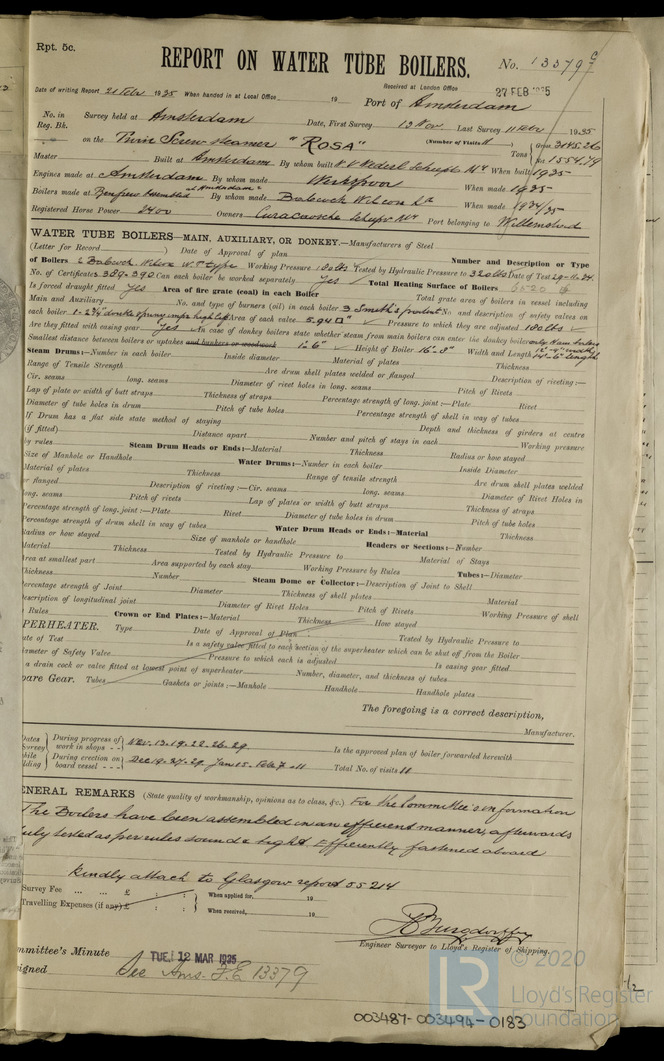 Rpt. 5c.
REPORT ON WATER TUBE BOILERS.
No. 13379
Date of writing Report 21 Febr 1935 When handed in at Local Office 19 Received at London Office 27 FEB 1935
Port of Amsterdam
No. in Reg. Bk. Survey held at Amsterdam Date, First Survey 13 Nov. Last Survey 11 Febr 1935
on the Twin Screw steamer "ROSA" (Number of Visits 11) Tons Gross 3145.26 Net 1554.79
Master Built at Amsterdam By whom built When built 1935
Engines made at Amsterdam By whom made Werkspoor When made 1935
Boilers made at Renfrew assembled at Amsterdam By whom made Babcock Wilcox Ld When made 1934/35
Registered Horse Power 2400 Owners Port belonging to Willemstad
WATER TUBE BOILERS—MAIN, AUXILIARY, OR DONKEY.—Manufacturers of Steel
(Letter for Record ) Date of Approval of plan Number and Description or Type
of Boilers 2 Babcock Wilcox W.T. type Working Pressure Tested by Hydraulic Pressure to 320 lbs Date of Test 29-11-34
No. of Certificate 389-390 Can each boiler be worked separately Yes Total Heating Surface of Boilers
Is forced draught fitted Yes Area of fire grate (coal) in each Boiler Total grate area of boilers in vessel including
Main and Auxiliary No. and type of burners (oil) in each boiler 3 Smith's No. and description of safety valves on
each boiler 1-2¾" double spring Area of each valve 5.94 □" Pressure to which they are adjusted
Are they fitted with easing gear Yes In case of donkey boilers state whether steam from main boilers can enter the donkey boiler only Main boilers
Smallest distance between boilers or uptakes and bunkers or woodwork 1'-6" Height of Boiler 16'-3" Width and Length
Steam Drums:—Number in each boiler Inside diameter Material of plates Thickness
Range of Tensile Strength Are drum shell plates welded or flanged Description of riveting:—
Cir. seams long. seams Diameter of rivet holes in long. seams Pitch of Rivets
Lap of plate or width of butt straps Thickness of straps Percentage strength of long. joint:—Plate Rivet
Diameter of tube holes in drum Pitch of tube holes Percentage strength of shell in way of tubes
If Drum has a flat side state method of staying Depth and thickness of girders at centre
(if fitted) Distance apart Number and pitch of stays in each Working pressure
by rules Steam Drum Heads or Ends:—Material Thickness Radius or how stayed
Size of Manhole or Handhole Water Drums:—Number in each boiler Inside Diameter
Material of plates Thickness Range of tensile strength Are drum shell plates welded
or flanged Description of riveting:—Cir. seams long. seams Diameter of Rivet Holes in
long. seams Pitch of rivets Lap of plates or width of butt straps Thickness of straps
Percentage strength of long. joint:—Plate Rivet Diameter of tube holes in drum Pitch of tube holes
Percentage strength of drum shell in way of tubes Water Drum Heads or Ends:—Material Thickness
Radius or how stayed Size of manhole or handhole Headers or Sections:—Number
Material Thickness Tested by Hydraulic Pressure to Material of Stays
Area at smallest part Area supported by each stay Working Pressure by Rules Tubes:—Diameter
Thickness Number Steam Dome or Collector:—Description of Joint to Shell
Percentage strength of Joint Diameter Thickness of shell plates Material
Description of longitudinal joint Diameter of Rivet Holes Pitch of Rivets Working Pressure of shell
Rules Crown or End Plates:—Material Thickness How stayed
PERHEATER. Type Date of Approval of Plan Tested by Hydraulic Pressure to
ate of Test Is a safety valve fitted to each section of the superheater which can be shut off from the Boiler
ameter of Safety Valve Pressure to which each is adjusted Is easing gear fitted
a drain cock or valve fitted at lowest point of superheater Number, diameter, and thickness of tubes
are Gear. Tubes Gaskets or joints:—Manhole Handhole Handhole plates
The foregoing is a correct description,
Manufacturer.
Dates of Survey while Building During progress of work in shops Nov. 13-19-22-26-29 Is the approved plan of boiler forwarded herewith
During erection on board vessel Dec 19-27-29 Jan 15 Feb 7-11 Total No. of visits 11
ENERAL REMARKS (State quality of workmanship, opinions as to class, &c.) For the Committee's information
The Boilers have been assembled in an efficient manner, afterwards
duly tested as per rules sound & tight. Efficiently fastened aboard
Kindly attach to Glasgow report 55214
Survey Fee £ : : When applied for, 19
Travelling Expenses (if any) £ : : When received, 19
Engineer Surveyor to Lloyd's Register of Shipping.
mmittee's Minute TUE. 12 MAR 1935
signed See Ams. F.E. 13379
© 2020
LR
Lloyd's Register
Foundation
003487-003494-0183